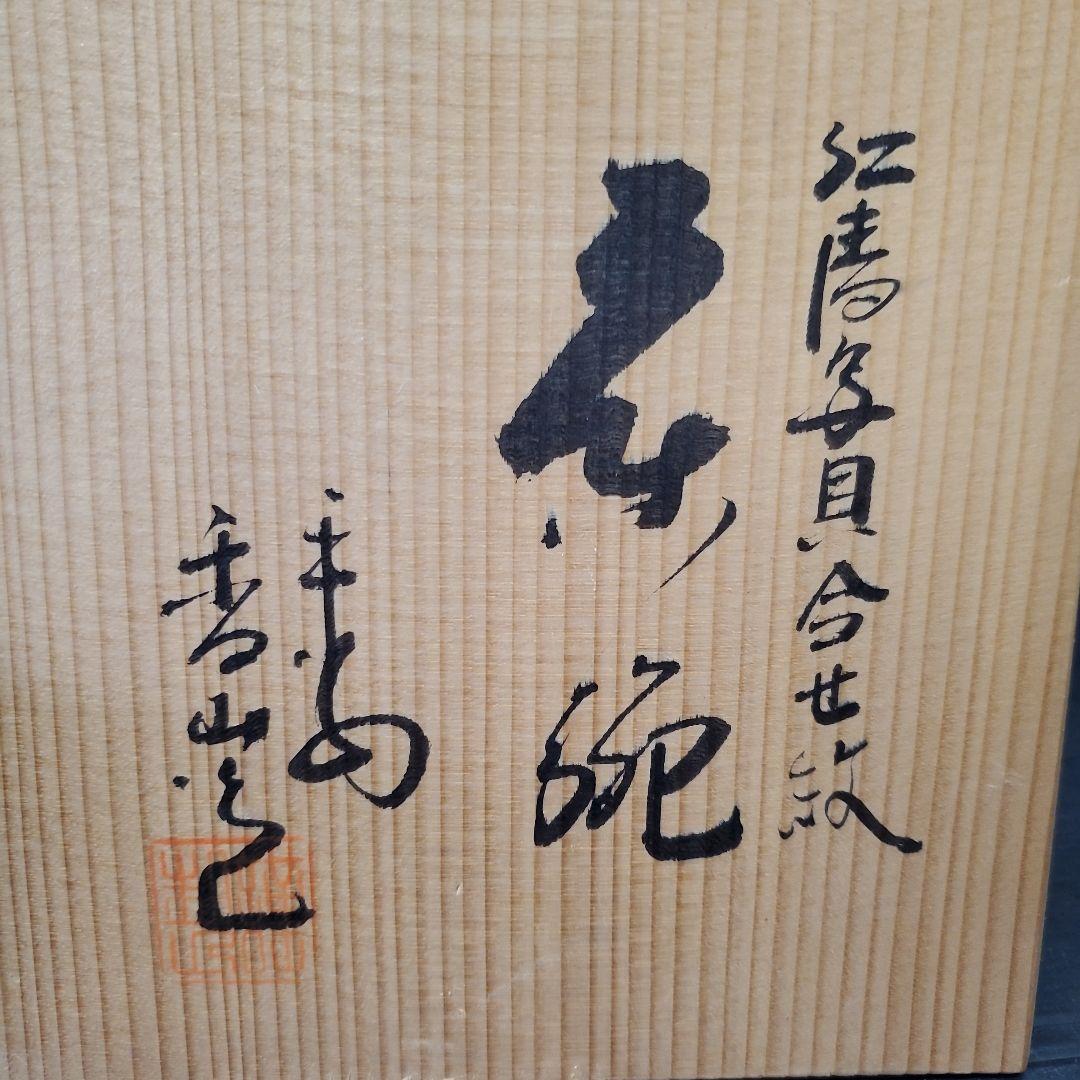 仁清写貝合せ紋
茶碗
平安
香山造